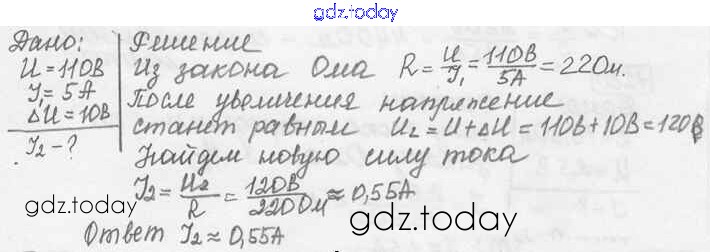 gdz.today
Дано:
U = 110В
I₁ = 5А
ΔU = 10В
I₂ - ?
Решение
Из закона Ома R = U/I₁ = 110В/5А = 22Ом.
После увеличения напряжение
станет равным U₂ = U + ΔU = 110В + 10В = 120В
Найдем новую силу тока
I₂ = U₂/R = 120В/220Ом ≈ 0,55А
Ответ I₂ ≈ 0,55А
gdz.today
gdz.today